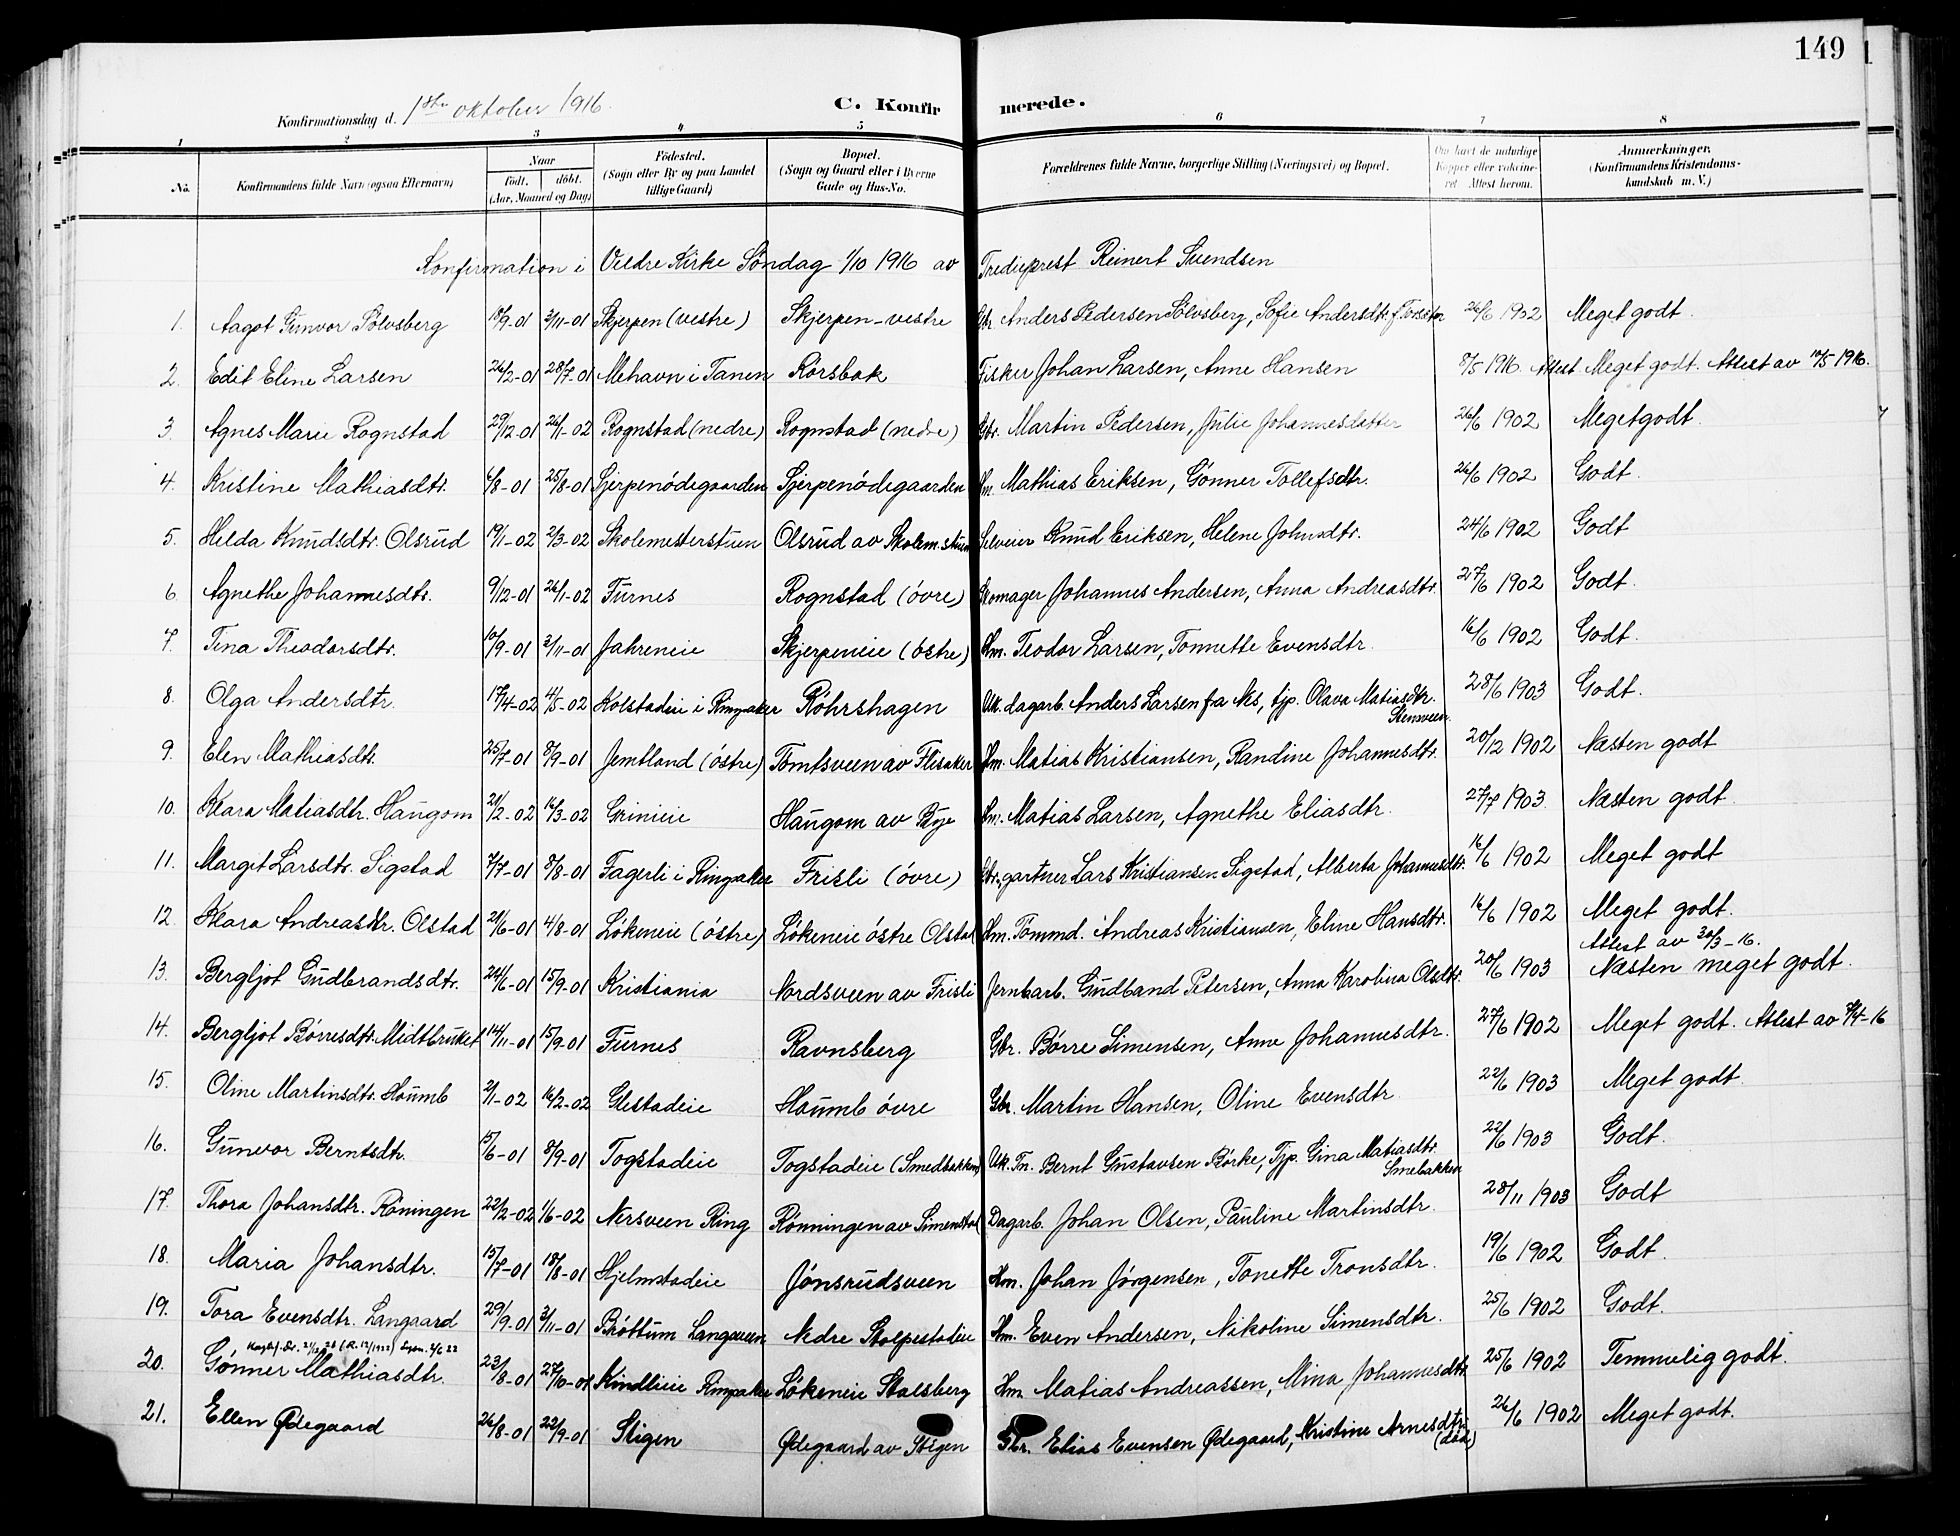 149
Konfirmationsdag d. 1ste oktober 1916. C. Konfirmerede.
1 2 3 4 5 6 7 8
No. Konfirmandens fulde Navn (ogsaa Efternavn) Naar Födt. döbt. (Aar, Maaned og Dag) Födested. (Sogn eller By og paa Landet tillige Gaard) Bopæl. (Sogn og Gaard eller i Byerne Gade og Hus-No. Forældrenes fulde Navne, borgerlige Stilling (Næringsvei) og Bopæl. Om havt de naturlige Kopper eller vakcineret. Attest herom. Anmærkninger. (Konfirmandens Kristendomskundskab m. V.)
Konfirmation i Veldre Kirke Söndag 1/10 1916 av Tredieprest Reinert Svendsen
1. Aagot Gunvor Sölvsberg 18/9-01 3/11-01 Skjerpen (vestre) Skjerpen-vestre Gbr. Anders Pedersen Sölvsberg, Sofie Andersdtr. 26/6 1902 Meget godt.
2. Edit Eline Larsen 26/2-01 28/7-01 Mehavn i Tanen Rörsbak Fisker Johan Larsen, Anne Hansen 8/5 1916. Attest Meget godt. Attest av 10/5 1916.
3. Agnes Marie Rognstad 29/12-01 26/1-02 Rognstad (nedre) Rognstad (nedre) Gbr. Martin Pedersen, Julie Johannesdatter 26/6 1902 Meget godt.
4. Kristine Mathiasdtr. 6/8-01 25/8-01 Sjerpenödegaarden Sjerpenödegaarden Hm. Mathias Eriksen, Gönner Tollefsdtr. 26/6 1902 Godt.
5. Helda Knudsdtr. Olsrud 19/1-02 2/3-02 Skolemesterstuen Olsrud av Skolem.stuen Selveier Knud Eriksen, Helene Johnsdtr. 24/6 1902 Godt
6. Agnethe Johannesdtr. 9/12-01 26/1-02 Furnes Rognstad (övre) Skomager Johannes Andersen, Anna Andreasdtr. 27/6 1902 Godt.
7. Tina Theodorsdtr. 10/9-01 3/11-01 Jahreneie Skjerpeneie (östre) Hm. Teodor Larsen, Tonnette Evensdtr. 16/6 1902 Godt.
8. Olga Andersdtr. 17/4-02 4/5-02 Kolstadeie i Ringsaker Röhrshagen Uk. dagarb. Anders Larsen fra Nes, tjp. Olava Matiasdtr. Stensveen. 28/6 1903 Godt.
9. Elen Mathiasdtr. 25/7-01 8/9-01 Jemtland (östre) Tomtsveen av Flisaker Hm. Matias Kristiansen, Randine Johannesdtr. 20/12 1902 Næsten godt
10. Klara Matiasdtr. Haugom 21/2-02 16/3-02 Grinieie Haugom av Bye Hm. Matias Larsen, Agnethe Eliasdtr. 27/7 1903. Næsten godt.
11. Margit Larsdtr. Sigstad 7/7-01 8/8-01 Fagerli i Ringsaker Frisli (övre) Gbr., gartner Lars Kristiansen Sigstad, Alberta Johannesdtr. 16/6 1902 Meget godt
12. Klara Andreasdtr. Olstad 21/6-01 4/8-01 Lökeneie (östre) Lökeneie östre Olstad Hm. Tömmd. Andreas Kristiansen, Eline Hansdtr. 16/6 1902 Meget godt.
13. Bergljot Gudbrandsdtr. 24/6-01 15/9-01 Kristiania Nordsveen av Frisli Jernbarb. Gudband Petersen, Anna Karolina Olsdtr. 20/6 1903 Attest av 30/3-16. Næsten meget godt.
14. Bergljot Börresdtr. Midtbruket 14/11-01 15/9-01 Furnes Ravnsberg Gbr. Börre Simensen, Anne Johannesdtr. 27/6 1902 Meget godt. Attest av /4-16
15. Oline Martinsdtr. Haumb 2/1-02 16/2-02 Glestadeie Haumb övre Gbr. Martin Hansen, Oline Evensdtr 22/6 1903 Meget godt.
16. Gunvor Berntsdtr. 15/6-01 8/9-01 Togstadeie Togstadeie (Smedbakken) Uk. Tn. Bernt Gustavsen Borke, Tjp. Gina Matiasdtr. Smebakken 22/6 1903 Godt.
17. Thora Johansdtr. Röningen 22/2-02 1/6-02 Nersveen Ring Rönningen av Simenstad Dagarb. Johan Olsen, Pauline Martinsdtr. 28/11 1903 Godt
18. Maria Johansdtr. 15/7-01 18/8-01 Hjelmstadeie Jönsrudsveen Hm. Johan Jörgensen, Tonette Tronsdtr. 19/6 1902 Godt.
19. Tora Evensdtr. Langaard 29/9-01 3/11-01 Bröttum Langsveen Nedre Stolpestadeie Hm. Even Andersen, Nikoline Simensdtr. 25/6 1902 Godt.
20. Gönner Mathiasdtr. 23/8-01 27/10-01 Kindlieie Ringsaker Lökeneie Stalsberg Hm. Matias Andreassen, Mina Johannesdtr. 25/6 1902 Temmelig godt.
21. Ellen Ødegaard 26/8-01 22/9-01 Stigen Ødegaard av Stigen Gbr. Elias Evensen Ødegaard, Kristine Arnesdtr. (död) 26/6 1902 Meget godt.